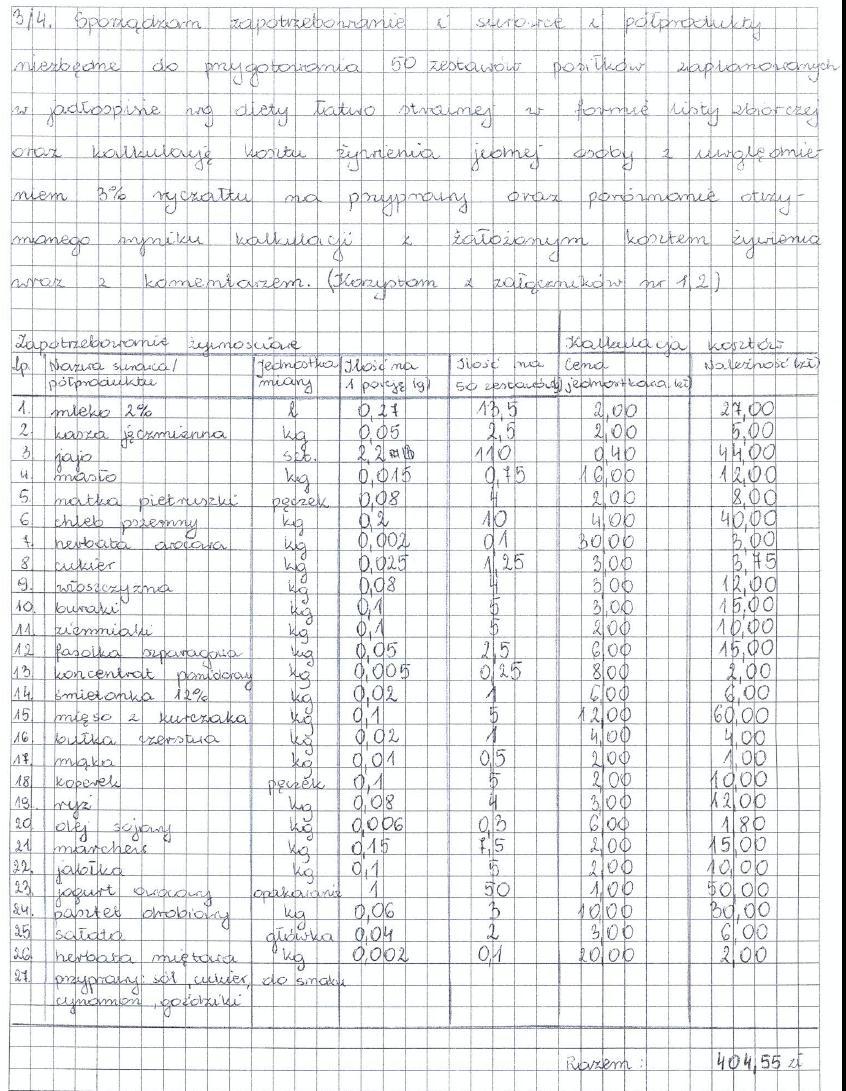 3/4. Sporządzam zapotrzebowanie i surowce i półprodukty
niezbędne do przygotowania 50 zestawów posiłków zaplanowanych
w jadłospisie wg diety łatwo strawnej w formie listy zbiorczej
oraz kalkulację kosztu żywienia jednej osoby z uwzględnie-
niem 3% ryczałtu na przyprawy oraz porównanie otrzy-
manego wyniku kalkulacji z założonym kosztem żywienia
wraz z komentarzem. (Korzystam z załączników nr 1,2)
Zapotrzebowanie żywnościowe Kalkulacja kosztów
Lp. Nazwa surowca/ półproduktu Jednostka miary Ilość na 1 porcję (g) Ilość na 50 zestawów Cena jednostkowa (zł) Należność (zł)
1. mleko 2% l 0,27 13,5 2,00 27,00
2. kasza jęczmienna kg 0,05 2,5 2,00 5,00
3 jajo szt. 2,2 110 0,40 44,00
4. masło kg 0,015 0,75 16,00 12,00
5. natka pietruszki pęczek 0,08 4 2,00 8,00
6 chleb pszenny kg 0,2 10 4,00 40,00
7. herbata owocowa kg 0,002 0,1 30,00 3,00
8 cukier kg 0,025 1,25 3,00 3,75
9. włoszczyzna kg 0,08 4 3,00 12,00
10. buraki kg 0,1 5 3,00 15,00
11. ziemniaki kg 0,1 5 2,00 10,00
12 fasolka szparagowa kg 0,05 2,5 6,00 15,00
13 koncentrat pomidorowy kg 0,005 0,25 8,00 2,00
14 śmietanka 12% kg 0,02 1 6,00 6,00
15 mięso z kurczaka kg 0,1 5 12,00 60,00
16. bułka czerstwa kg 0,02 1 4,00 4,00
17. mąka kg 0,01 0,5 2,00 1,00
18 koperek pęczek 0,1 5 2,00 10,00
19. ryż kg 0,08 4 3,00 12,00
20 olej sojowy kg 0,006 0,3 6,00 1,80
21 marchew kg 0,15 7,5 2,00 15,00
22. jabłka kg 0,1 5 2,00 10,00
23. jogurt owocowy opakowanie 1 50 1,00 50,00
24. pasztet drobiowy kg 0,06 3 10,00 30,00
25 sałata główka 0,04 2 3,00 6,00
26 herbata miętowa kg 0,002 0,1 20,00 2,00
27. przyprawy: sól, cukier, do smaku
cynamon, goździki
Razem: 404,55 zł